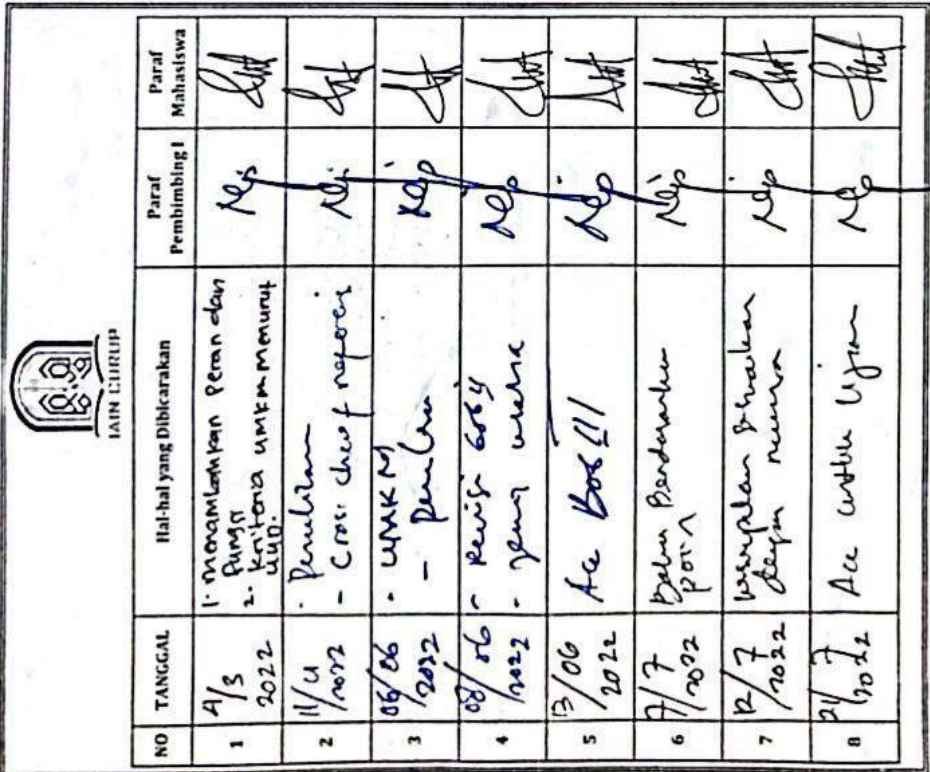 IAIN CURUP
NO TANGGAL Hal-hal yang Dibicarakan Paraf Pembimbing I Paraf Mahasiswa
1 4/3 2022 1. menambahkan Peran dan
Fungsi
2. kriteria umkm menurut
UUD.
2 11/4 2022 Penulisan
- cross check referensi
3 06/06 2022 - UMKM
- Penulisan
4 08/06 2022 - Revisi bab 4
- jenis usaha
5 13/06 2022 Acc Bab III
6 7/7 2022 Berdasarkan
poin
7 12/7 2022 kesimpulan disesuaikan
dengan rumusan
8 21/7 2022 Acc untuk Ujian